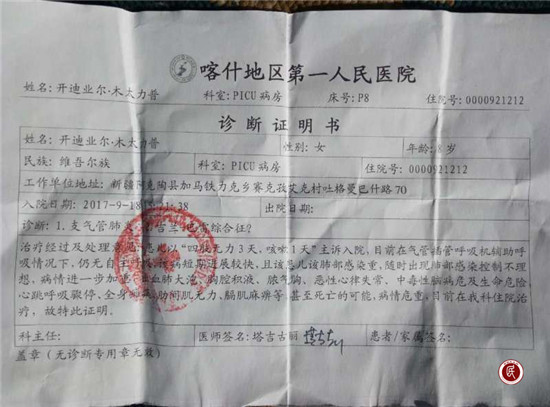 喀什地区第一人民医院
姓名:开迪亚尔·木太力普 科室:PICU病房 床号:P8 住院号:0000921212
诊断证明书
姓名:开迪亚尔·木太力普 性别:女 年龄: 岁
民族:维吾尔族 科室:PICU病房 住院号:0000921212
工作单位地址:新疆阿克陶县加马铁力克乡赛克孜艾克村吐格曼巴什路70
入院日期:2017-9-18 :38 出院日期:
诊断:1.支气管肺炎 吉兰-巴雷综合征?
治疗经过及处理意见:患儿以“四肢无力3天,咳嗽1天”主诉入院,目前在气管插管呼吸机辅助呼
吸情况下,仍无自主呼吸,该病短期进展较快,且该患儿该肺部感染重,随时出现肺部感染控制不理
想,病情进一步加重 肺大泡、胸腔积液、脓气胸、恶性心律失常、中毒性脑病危及生命危险
心跳呼吸骤停,全身 肋间肌无力,膈肌麻痹等,甚至死亡的可能,病情危重,目前在我科住院治
疗,故特此证明。
科主任: 医师签名:塔吉古丽 患者/家属签名:
盖章(无诊断专用章无效)